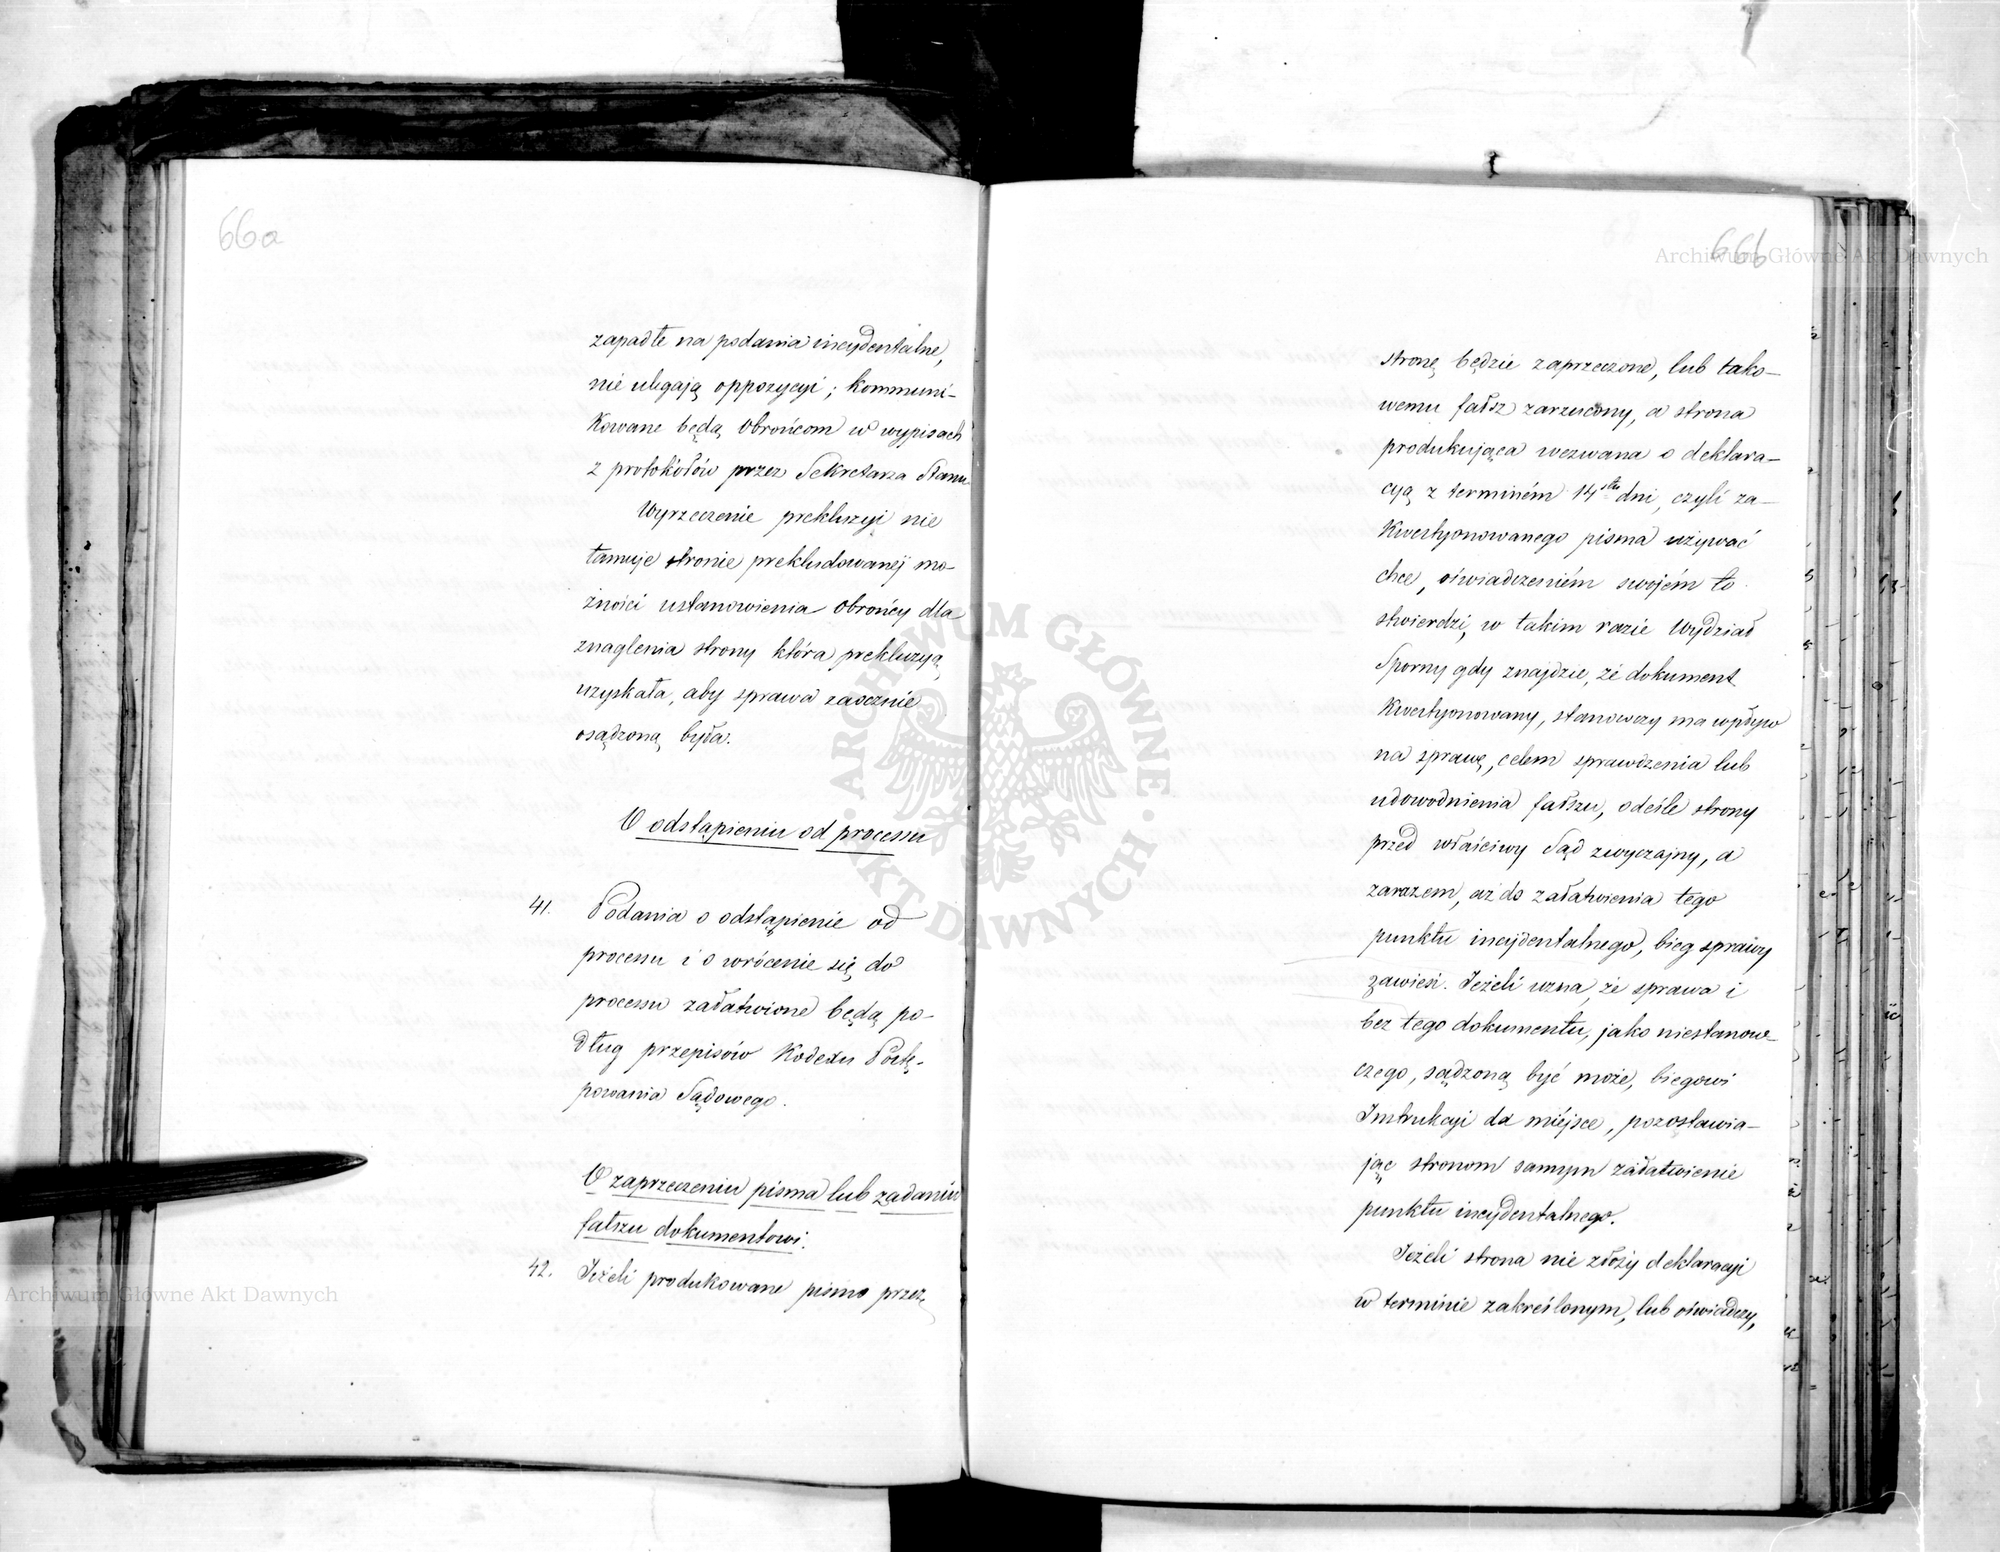 66a
zapadłe na podania incydentalne,
nie ulegają oppozycyi; kommuni-
kowane będą Obrońcom w wypisach
z protokółów przez Sekretarza Stanu.
Wyrzeczenie prekluzyi nie
tamuje stronie prekludowanéj mo-
żności ustanowienia Obrońcy dla
znaglenia strony która prekluzyą
uzyskała, aby sprawa zaocznie
osądzoną była.
O odstąpieniu od processu
41. Podania o odstąpienie od
processu i o wrócenie się do
processu załatwione będą po-
dług przepisów Kodexu Postę-
powania Sądowego.
O zaprzeczeniu pisma lub zadaniu
fałszu dokumentowi.
42. Jeżeli produkowane pismo przez
66b
stronę będzie zaprzeczone, lub tako-
wemu fałsz zarzucony, a strona
produkująca wezwana o deklara-
cyą z terminém 14stu dni, czyli za-
kwestyonowanego pisma używać
chce, oświadczeniém swojém to
stwierdzi, w takim razie Wydział
Sporny gdy znajdzie, że dokument
kwestyonowany, stanowczy ma wpływ
na sprawę, celem sprawdzenia lub
udowodnienia fałszu, odeśle strony
przed właściwy Sąd zwyczajny, a
zarazem, aż do załatwienia tego
punktu incydentalnego, bieg sprawy
zawiesi. Jeżeli uzna, że sprawa i
bez tego dokumentu, jako niestanow-
czego, sądzoną być może, biegowi
Instrukcyi da miéjsce, pozostawia-
jąc stronom samym załatwienie
punktu incydentalnego.
Jeżeli strona nie złoży deklaracyi
w terminie zakreślonym, lub oświadczy,
Archiwum Główne Akt Dawnych
Archiwum Główne Akt Dawnych
ARCHIWUM GŁÓWNE AKT DAWNYCH